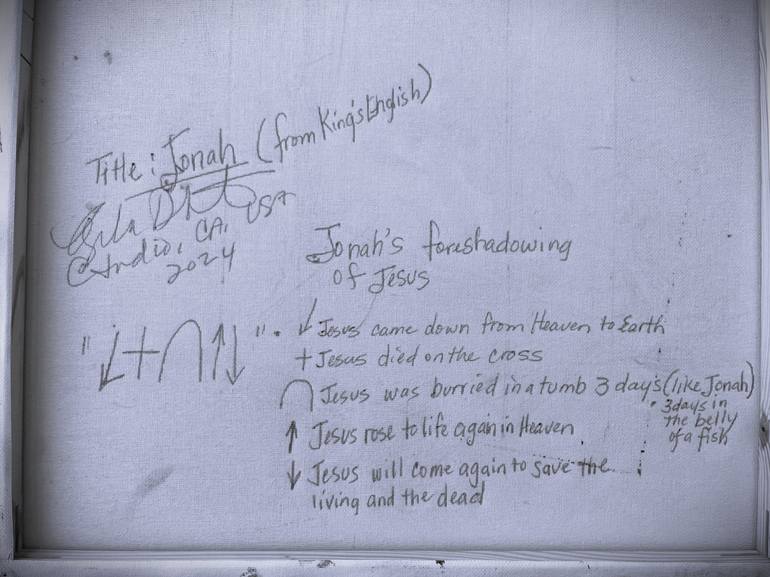 Title: Jonah (from King's English)
USA
@Indio, CA,
2024
Jonah's foreshadowing
of Jesus
"↙+∩↑↓".
↙ Jesus came down from Heaven to Earth
+ Jesus died on the cross
∩ Jesus was burried in a tumb 3 days (like Jonah)
• 3 days in
the belly
of a fish
↑ Jesus rose to life again in Heaven
↓ Jesus will come again to save the
living and the dead